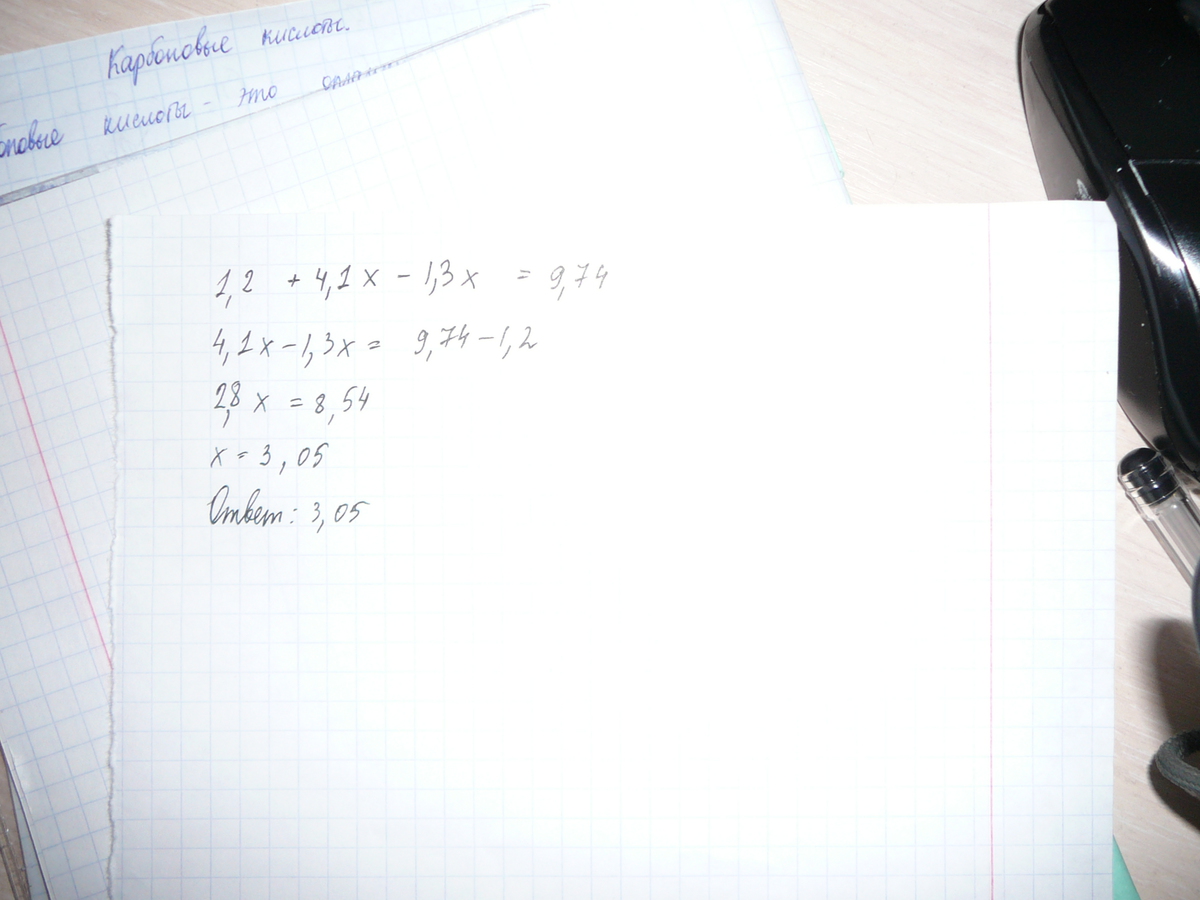 Карбоновые кислоты.
кислоты - это
1,2 + 4,1x - 1,3x = 9,74
4,1x - 1,3x = 9,74 - 1,2
2,8x = 8,54
x = 3,05
Ответ: 3,05